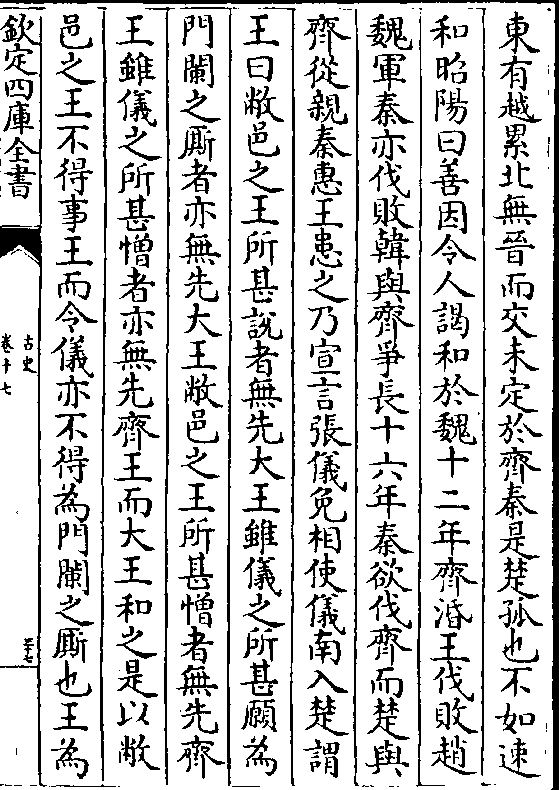 東有越累北無晉而交未定於齊秦是楚孤也不如速
和昭陽曰善因令人謁和於魏十二年齊湣王伐敗趙
魏軍秦亦伐敗韓與齊爭長十六年秦欲伐齊而楚與
齊從親秦惠王患之乃宣言張儀免相使儀南入楚謂
王曰敝邑之王所甚說者無先大王雖儀之所甚願為
門闌之廝者亦無先大王敝邑之王所甚憎者無先齊
王雖儀之所甚憎者亦無先齊王而大王和之是以敝
邑之王不得事王而令儀亦不得為門闌之廝也王為
欽定四庫全書
古史
卷十七
三十七